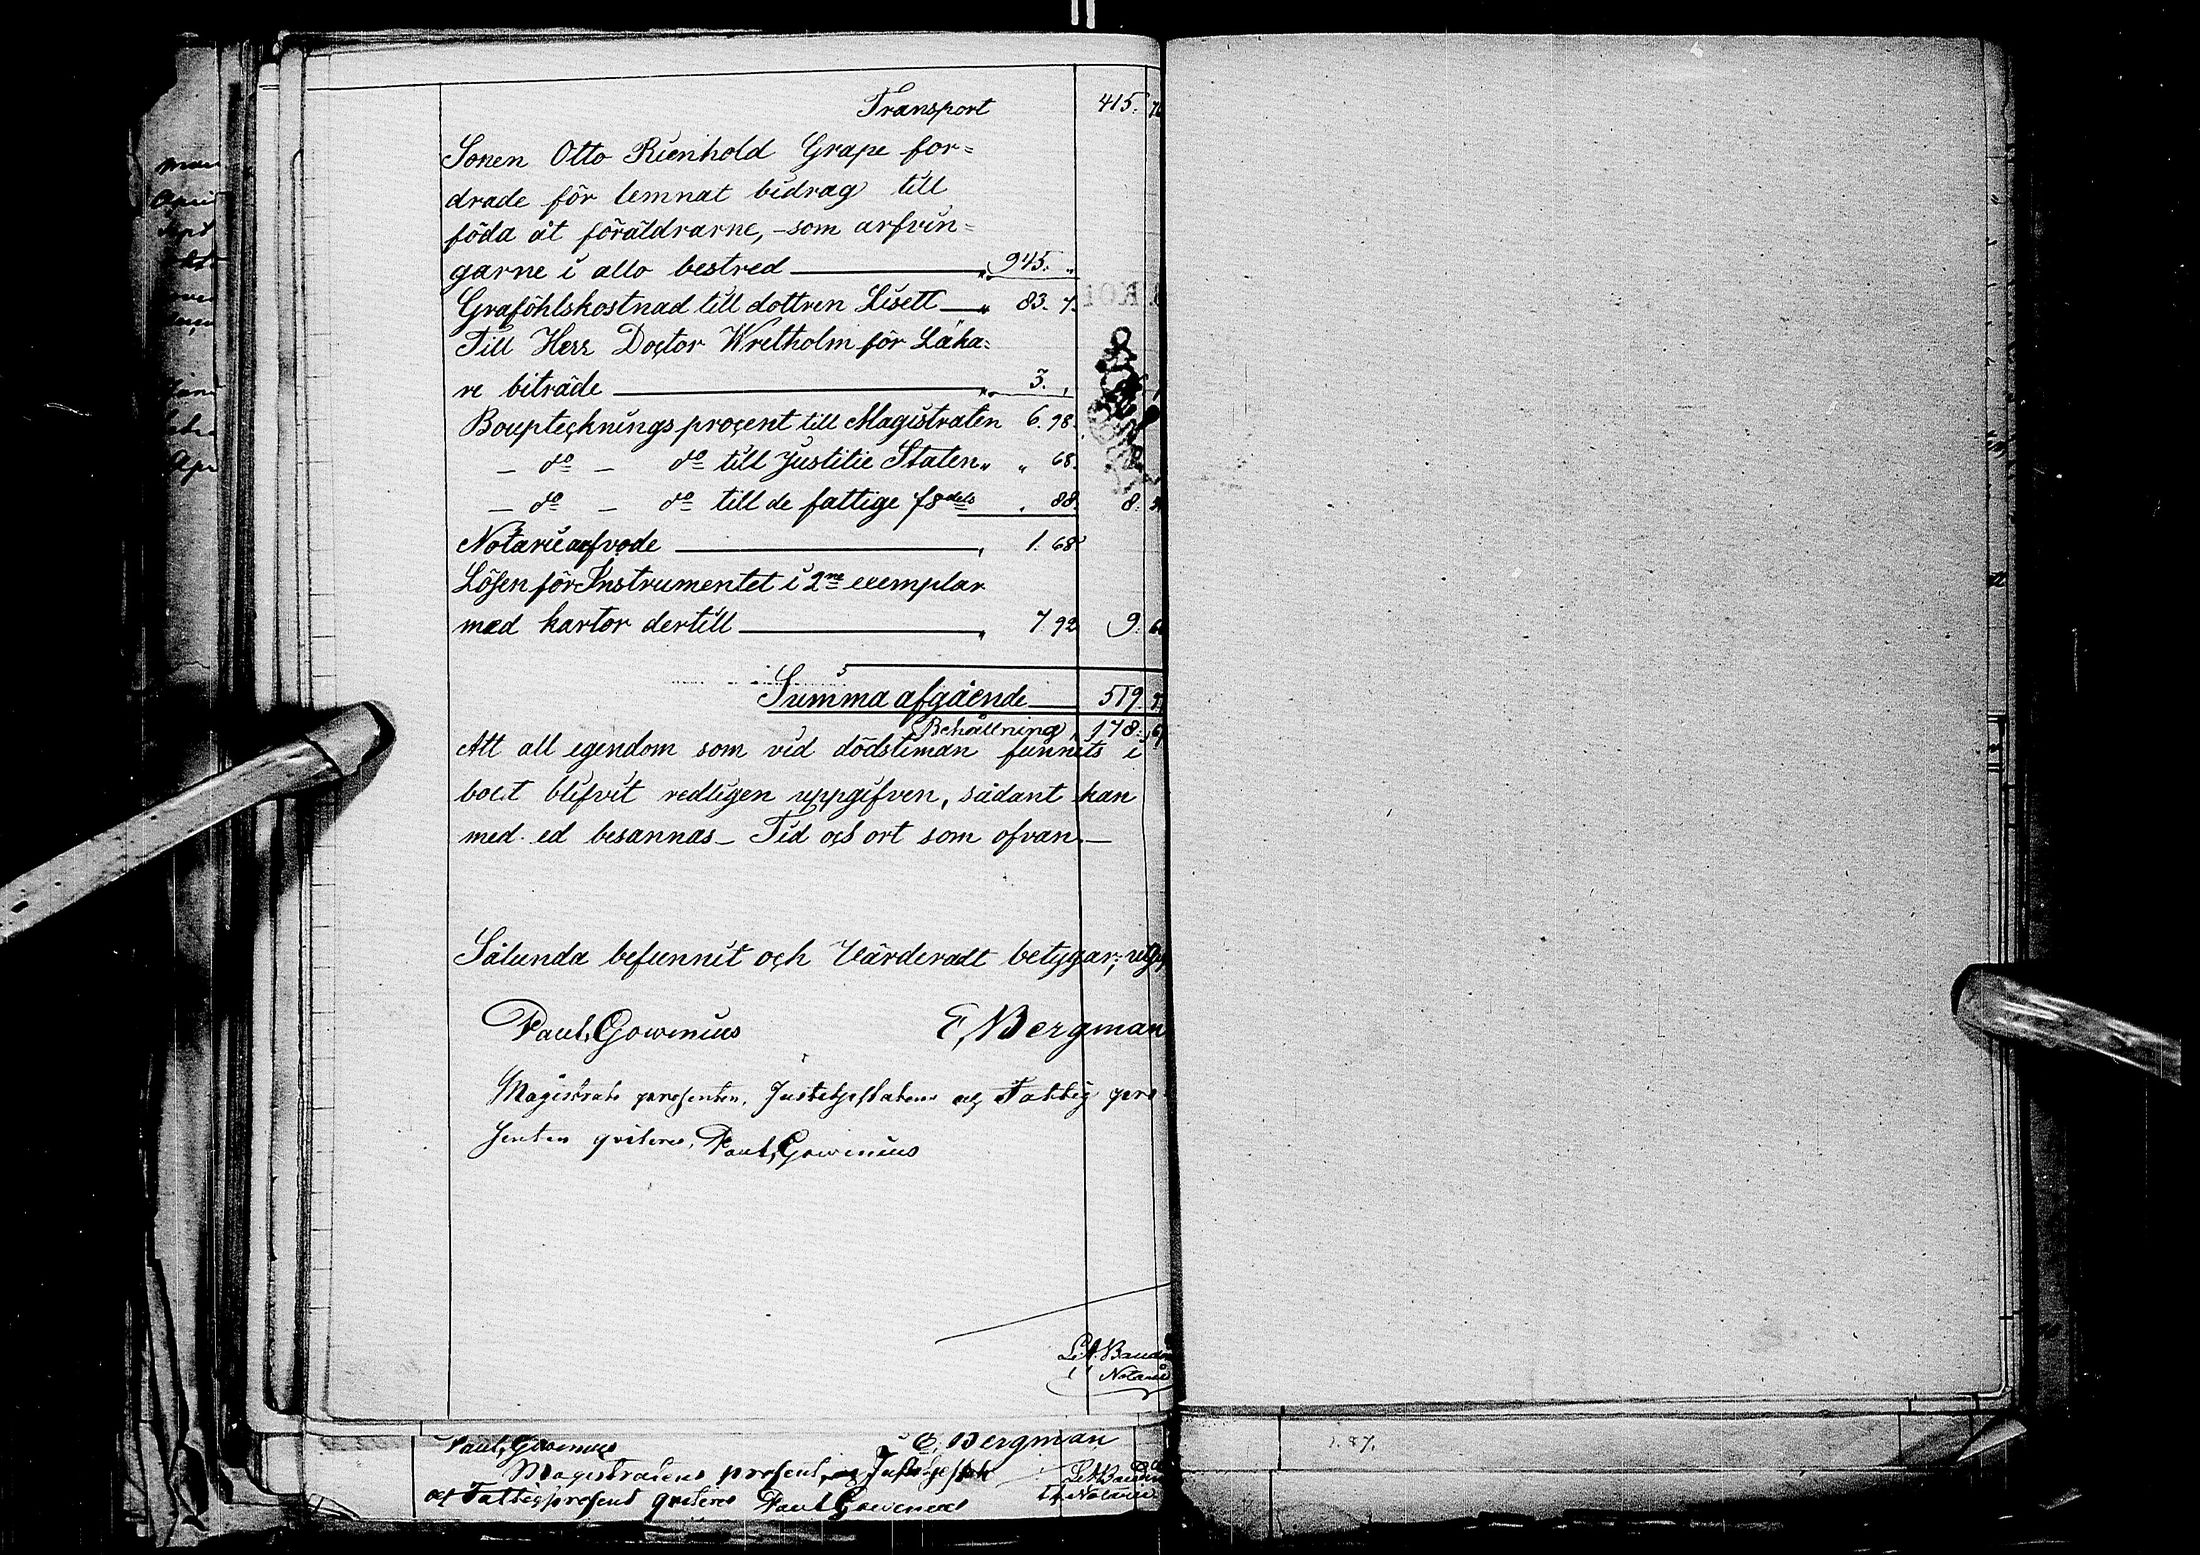 Transport 415.
Sonen Otto Rienhold Grape for=
drade för lemnat bidrag till
föda åt föräldrarne, -som arfvin=
garne i allo bestred " 945. "
Graföhlskostnad till dottren Lisett " 83. 7.
Till Herr Doctor Wretholm för Läka=
re biträde " 3. ,
Bouptecknings procent till Magistraten 6. 98.
— do — do till Justitie Staten " " 68.
— do — do till de fattige /8dels . 88. 8.
Notarie arfvode , 1. 68
Lösen för Instrumentet i 2ne exemplar
med kartor dertill , 7 92 9.
Summa afgående 519.
Behållning 178.
Att all egendom som vid dödstiman funnits i
boet blifvit redligen uppgifven, sådant kan
med ed besannas — Tid och ort som ofvan. —
Sålunda befunnit och Värderadt betygar;
Paul, Gowenius E, Bergman
Magistrats procenten, Justitiestatens och Fattig pro
centen qviteras, Paul, Gowenius
Notarie
Paul, Gowenius E, Bergman
Magistratens procent, Justitie
och Fattigprocent qviteras Paul Gowenius
Notarie